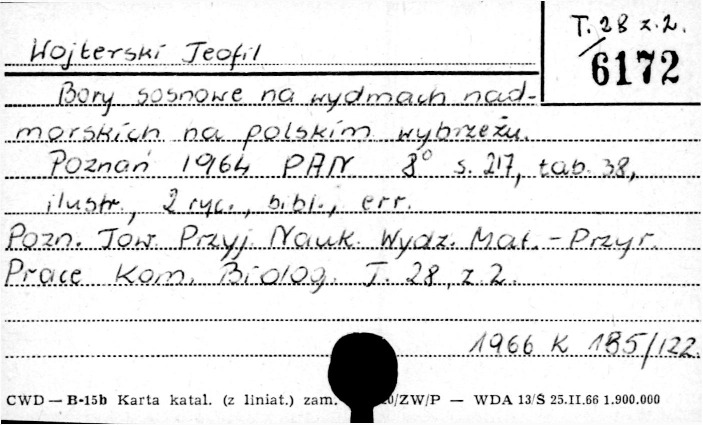 T. 28 z. 2.
6172
Wojterski Teofil
Bory sosnowe na wydmach nad-
morskich na polskim wybrzeżu.
Poznań 1964 PAN 8° s. 217, tab. 38,
ilustr., 2 ryc., bibl., err.
Pozn. Tow. Przyj. Nauk. Wydz. Mat. - Przyr.
Prace Kom. Biolog. T. 28, z. 2.
1966 K 185/122.
CWD — B-15b Karta katal. (z liniat.) zam. /ZW/P — WDA 13/Ś 25.II.66 1.900.000